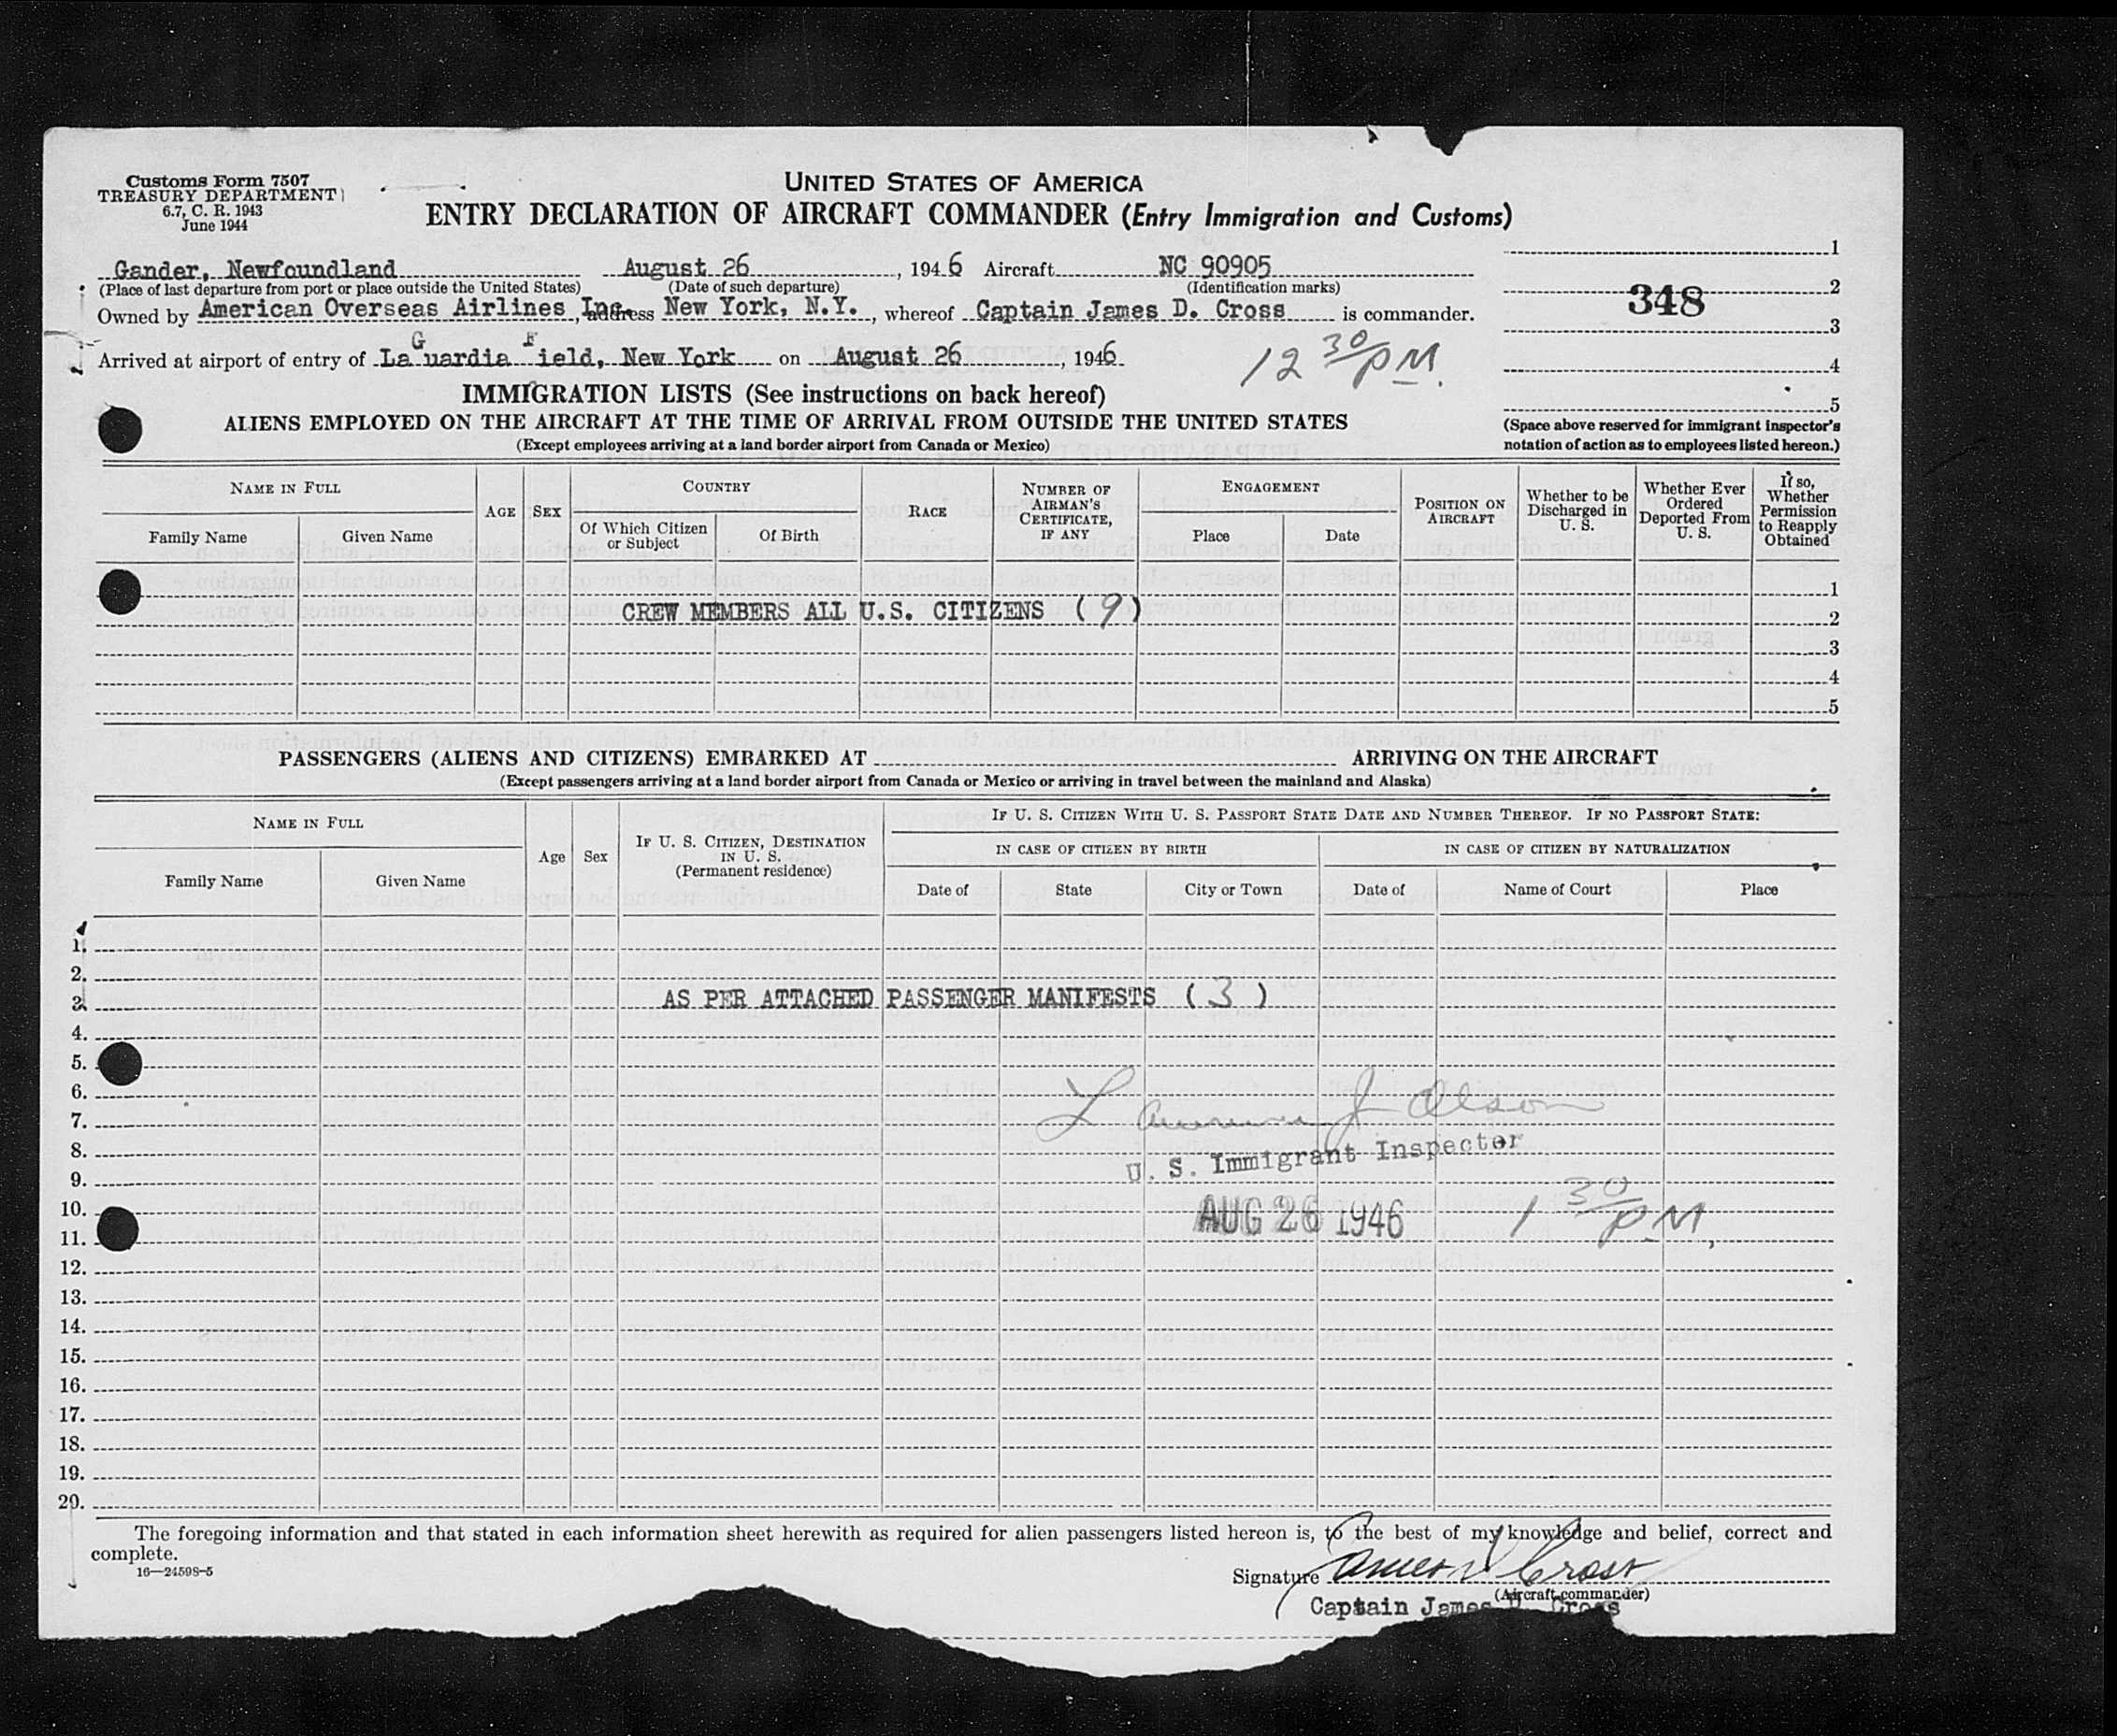 Customs Form 7507
TREASURY DEPARTMENT
6.7, C. R. 1943
June 1944
UNITED STATES OF AMERICA
ENTRY DECLARATION OF AIRCRAFT COMMANDER (Entry Immigration and Customs)
Gander, Newfoundland August 26, 1946 Aircraft NC 90905
(Place of last departure from port or place outside the United States) (Date of such departure) (Identification marks)
Owned by American Overseas Airlines, Inc. address New York, N.Y., whereof Captain James D. Cross is commander.
Arrived at airport of entry of LaGuardia Field, New York on August 26, 1946
12 30/PM.
1
2
348
3
4
5
(Space above reserved for immigrant inspector's
notation of action as to employees listed hereon.)
IMMIGRATION LISTS (See instructions on back hereof)
ALIENS EMPLOYED ON THE AIRCRAFT AT THE TIME OF ARRIVAL FROM OUTSIDE THE UNITED STATES
(Except employees arriving at a land border airport from Canada or Mexico)
NAME IN FULL
Family Name Given Name
AGE
SEX
COUNTRY
Of Which Citizen or Subject
Of Birth
RACE
NUMBER OF AIRMAN'S CERTIFICATE, IF ANY
ENGAGEMENT
Place Date
POSITION ON AIRCRAFT
Whether to be Discharged in U. S.
Whether Ever Ordered Deported From U. S.
If so, Whether Permission to Reapply Obtained
1
CREW MEMBERS ALL U.S. CITIZENS (9) 2
3
4
5
PASSENGERS (ALIENS AND CITIZENS) EMBARKED AT ARRIVING ON THE AIRCRAFT
(Except passengers arriving at a land border airport from Canada or Mexico or arriving in travel between the mainland and Alaska)
NAME IN FULL
Family Name Given Name
Age
Sex
IF U. S. CITIZEN, DESTINATION IN U. S.
(Permanent residence)
IF U. S. CITIZEN WITH U. S. PASSPORT STATE DATE AND NUMBER THEREOF. IF NO PASSPORT STATE:
IN CASE OF CITIZEN BY BIRTH IN CASE OF CITIZEN BY NATURALIZATION
Date of State City or Town Date of Name of Court Place
1.
2.
3. AS PER ATTACHED PASSENGER MANIFESTS (3)
4.
5.
6.
7. Lawrence J Olson
8. U. S. Immigrant Inspector
9.
10. AUG 26 1946 1 30/PM,
11.
12.
13.
14.
15.
16.
17.
18.
19.
20.
The foregoing information and that stated in each information sheet herewith as required for alien passengers listed hereon is, to the best of my knowledge and belief, correct and
complete.
16—24598-5
Signature James D Cross
(Aircraft commander)
Captain James D. Cross